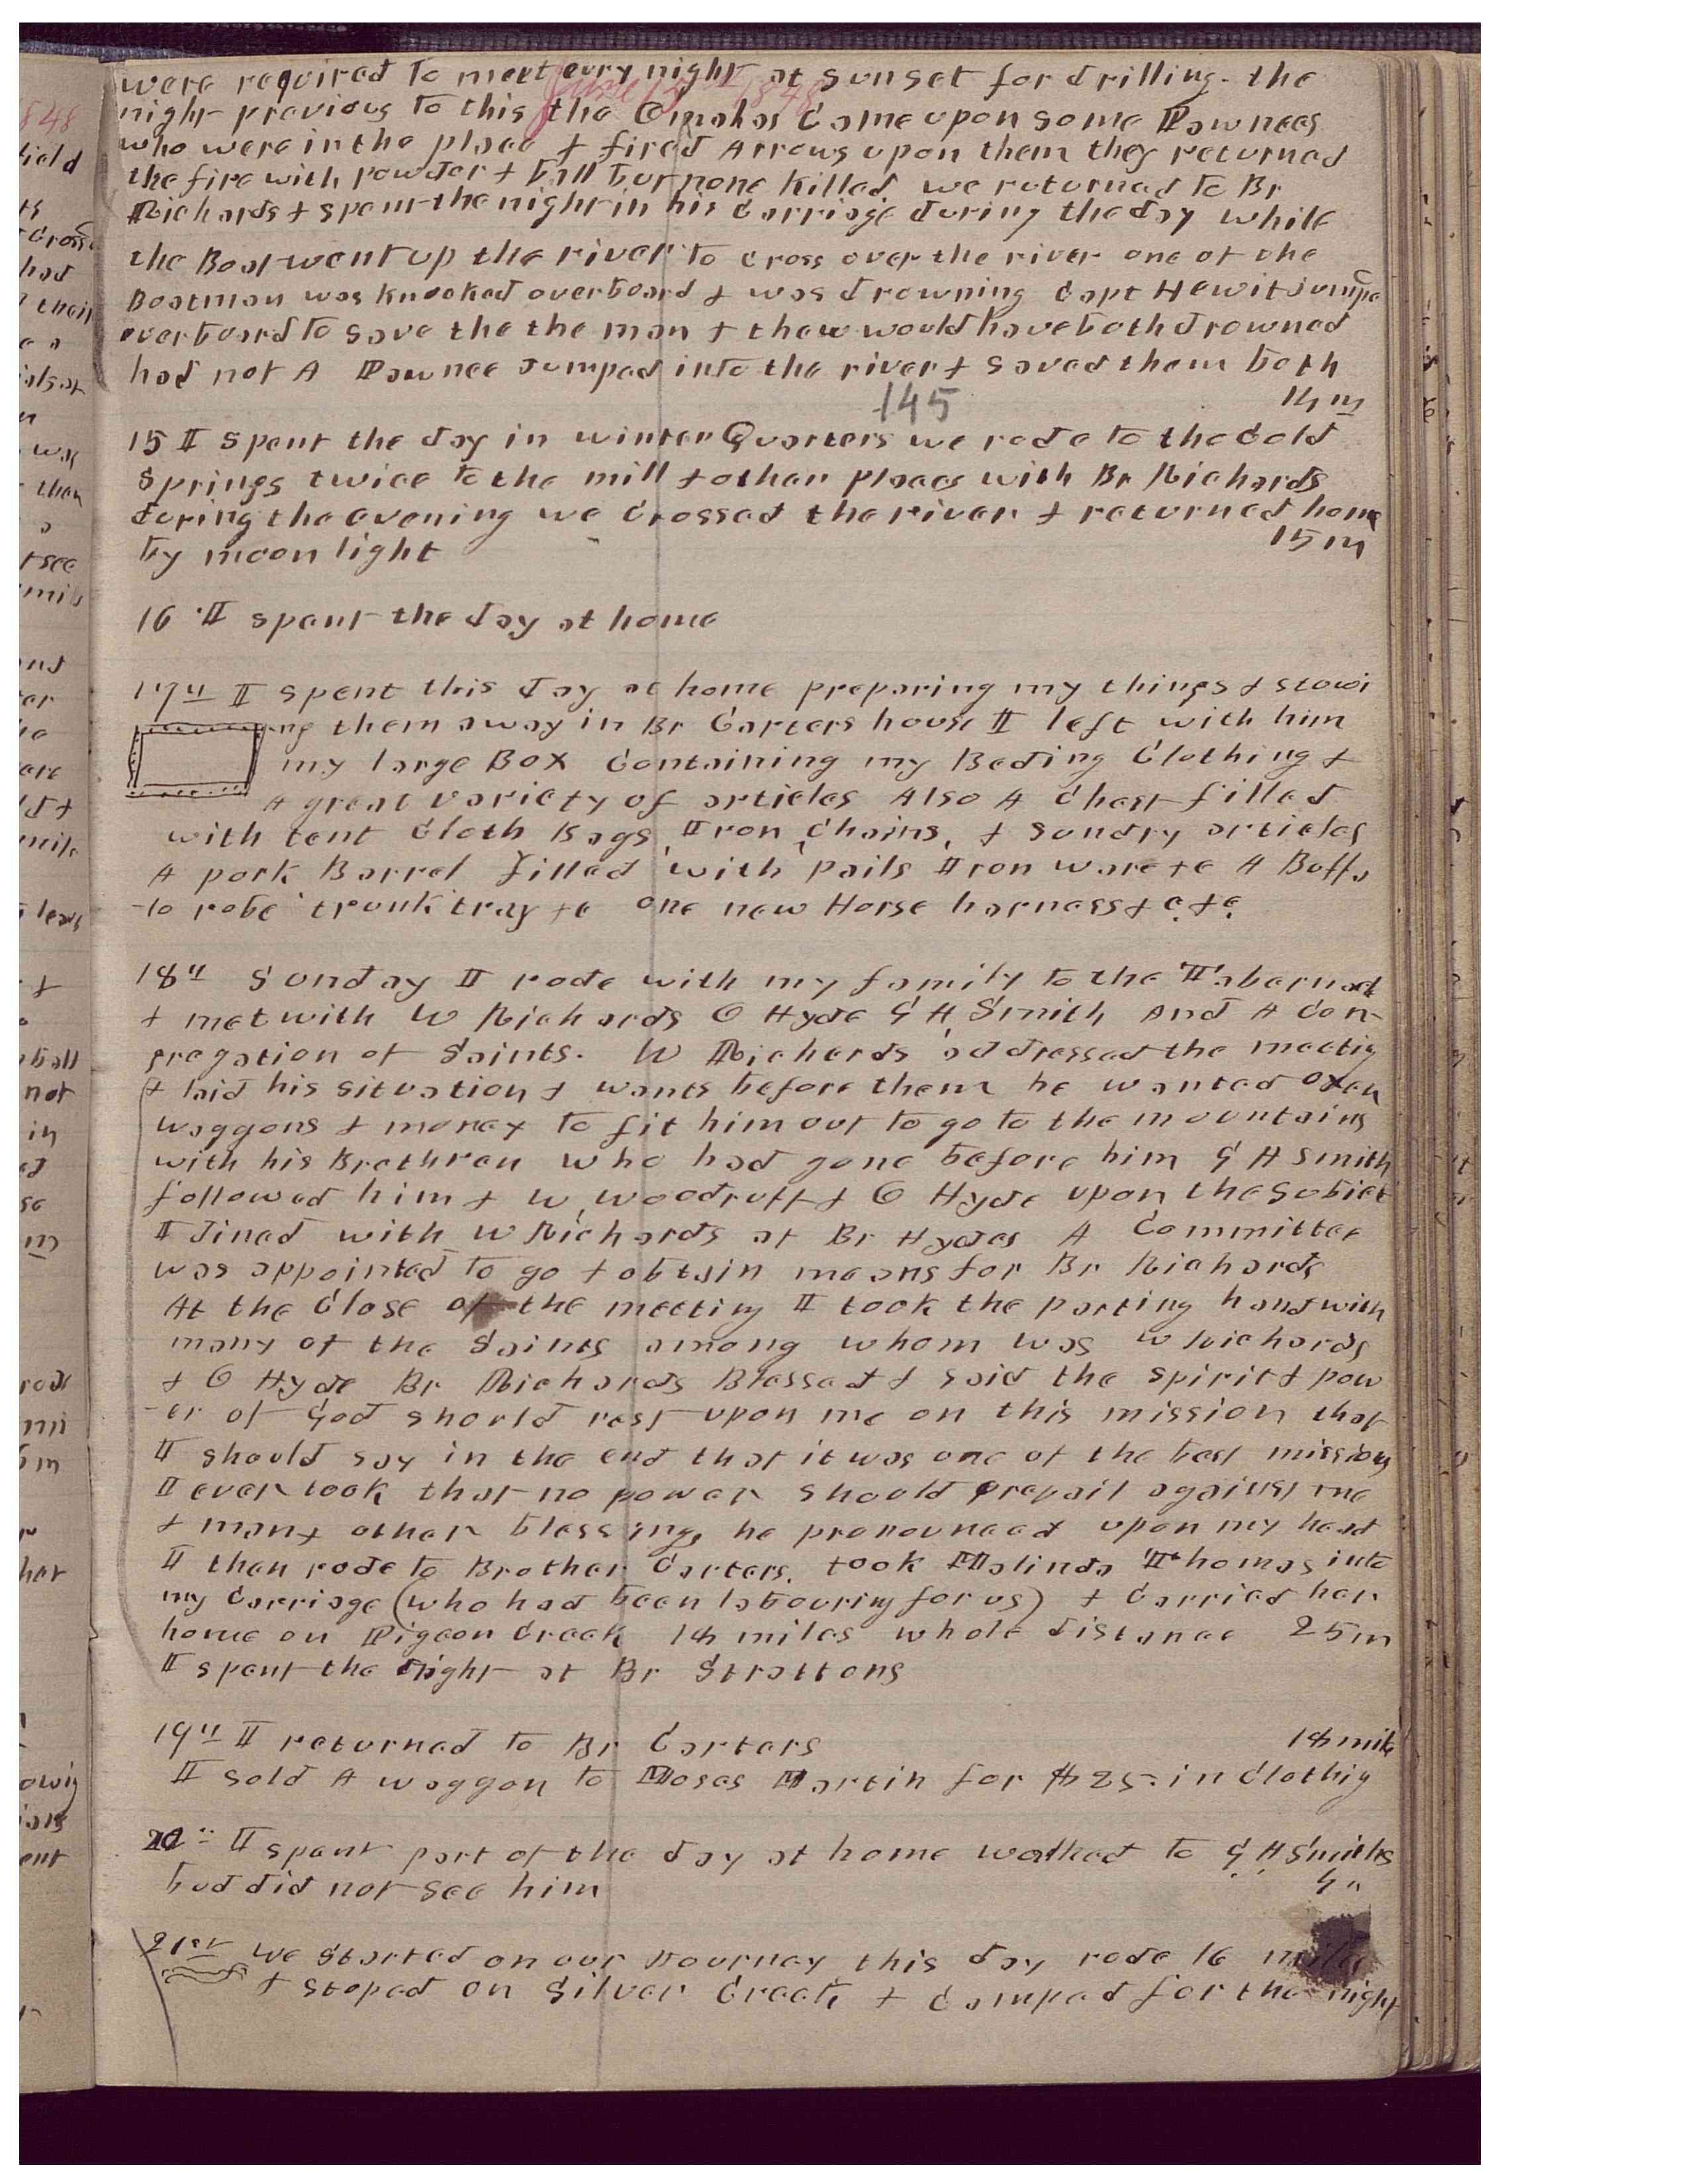 were required to meet evry night at sunset for drilling. the
June 15th 1848
night previous to this the Omahas Came upon some Pawnees
who were in the place & fired Arrows upon them they returned
the fire with powder & ball but none killed. we returned to Br
Richards & spent the night in his Carriage during the day while
the Boat went up the river to cross over the river one of the
Boatman was knocked overboard & was drowning Capt Hewit jumpe
overboard to save the the man & thew would have both drowned
had not A Pawnee Jumped into the river & saved them both
14 m
145
15 I spent the day in winter Quarters we rode to the Cold
Springs twice to the mill & other places with Br Richards
during the evening we Crossed the river & returned home
by moon light 15 m
16 I spent the day at home
17th I spent this day at home preparing my things & stowi
ng them away in Br Carters house I left with him
my large Box Containing my Beding Clothing &
A great variety of articles Also A Chest filled
with tent Cloth Bags, Iron, Chains, & sundry articles
A pork Barrel filled with pails Iron ware &c A Buffa
-lo robe trunk tray &c one new Horse harness &c. &c.
18th Sunday I rode with my family to the Tabernacle
& met with W Richards O Hyde G A Smith And A Con-
gregation of Saints. W Richards addressed the meetig
& laid his situation & wants before them he wanted oxen
waggons & money to fit him out to go to the mountains
with his Brethren who had gone before him G A Smith
followed him & W. Woodruff & O Hyde upon the subject
I dined with W Richards at Br Hydes A Committee
was appointed to go & obtain means for Br Richards
At the Close of the meeting I took the parting hand with
many of the Saints among whom was W Richards
& O Hyde Br Richards Blessed & said the spirit & pow
-er of God should rest upon me on this mission that
I should say in the end that it was one of the best missions
I ever took that no power should prevail against me
& many other blessings he pronounced upon my head
I then rode to Brother Carters. took Malinda Thomas into
my Carriage (who had been labouring for us) & Carried her
home on Pigeon Creek 18 miles whole distance 25 m
I spent the night at Br Strattons
19th I returned to Br Carters 18 mile
I sold A waggon to Moses Martin for $25. in Clothig
20th I spent part of the day at home walked to G A Smiths
but did not see him 4 "
21st we started on our Journey this day rode 16 miles
& stoped on Silver Creek & Camped for the night